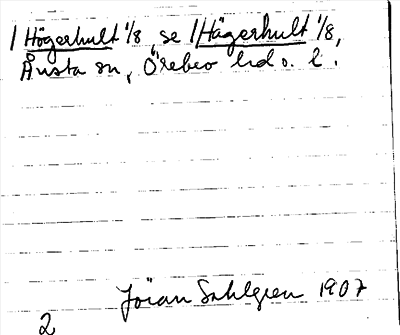 1 Högerhult 1/8, se 1 Hägerhult 1/8,
Ånsta sn, Örebro hd o. l.
Jöran Sahlgren 1907
2